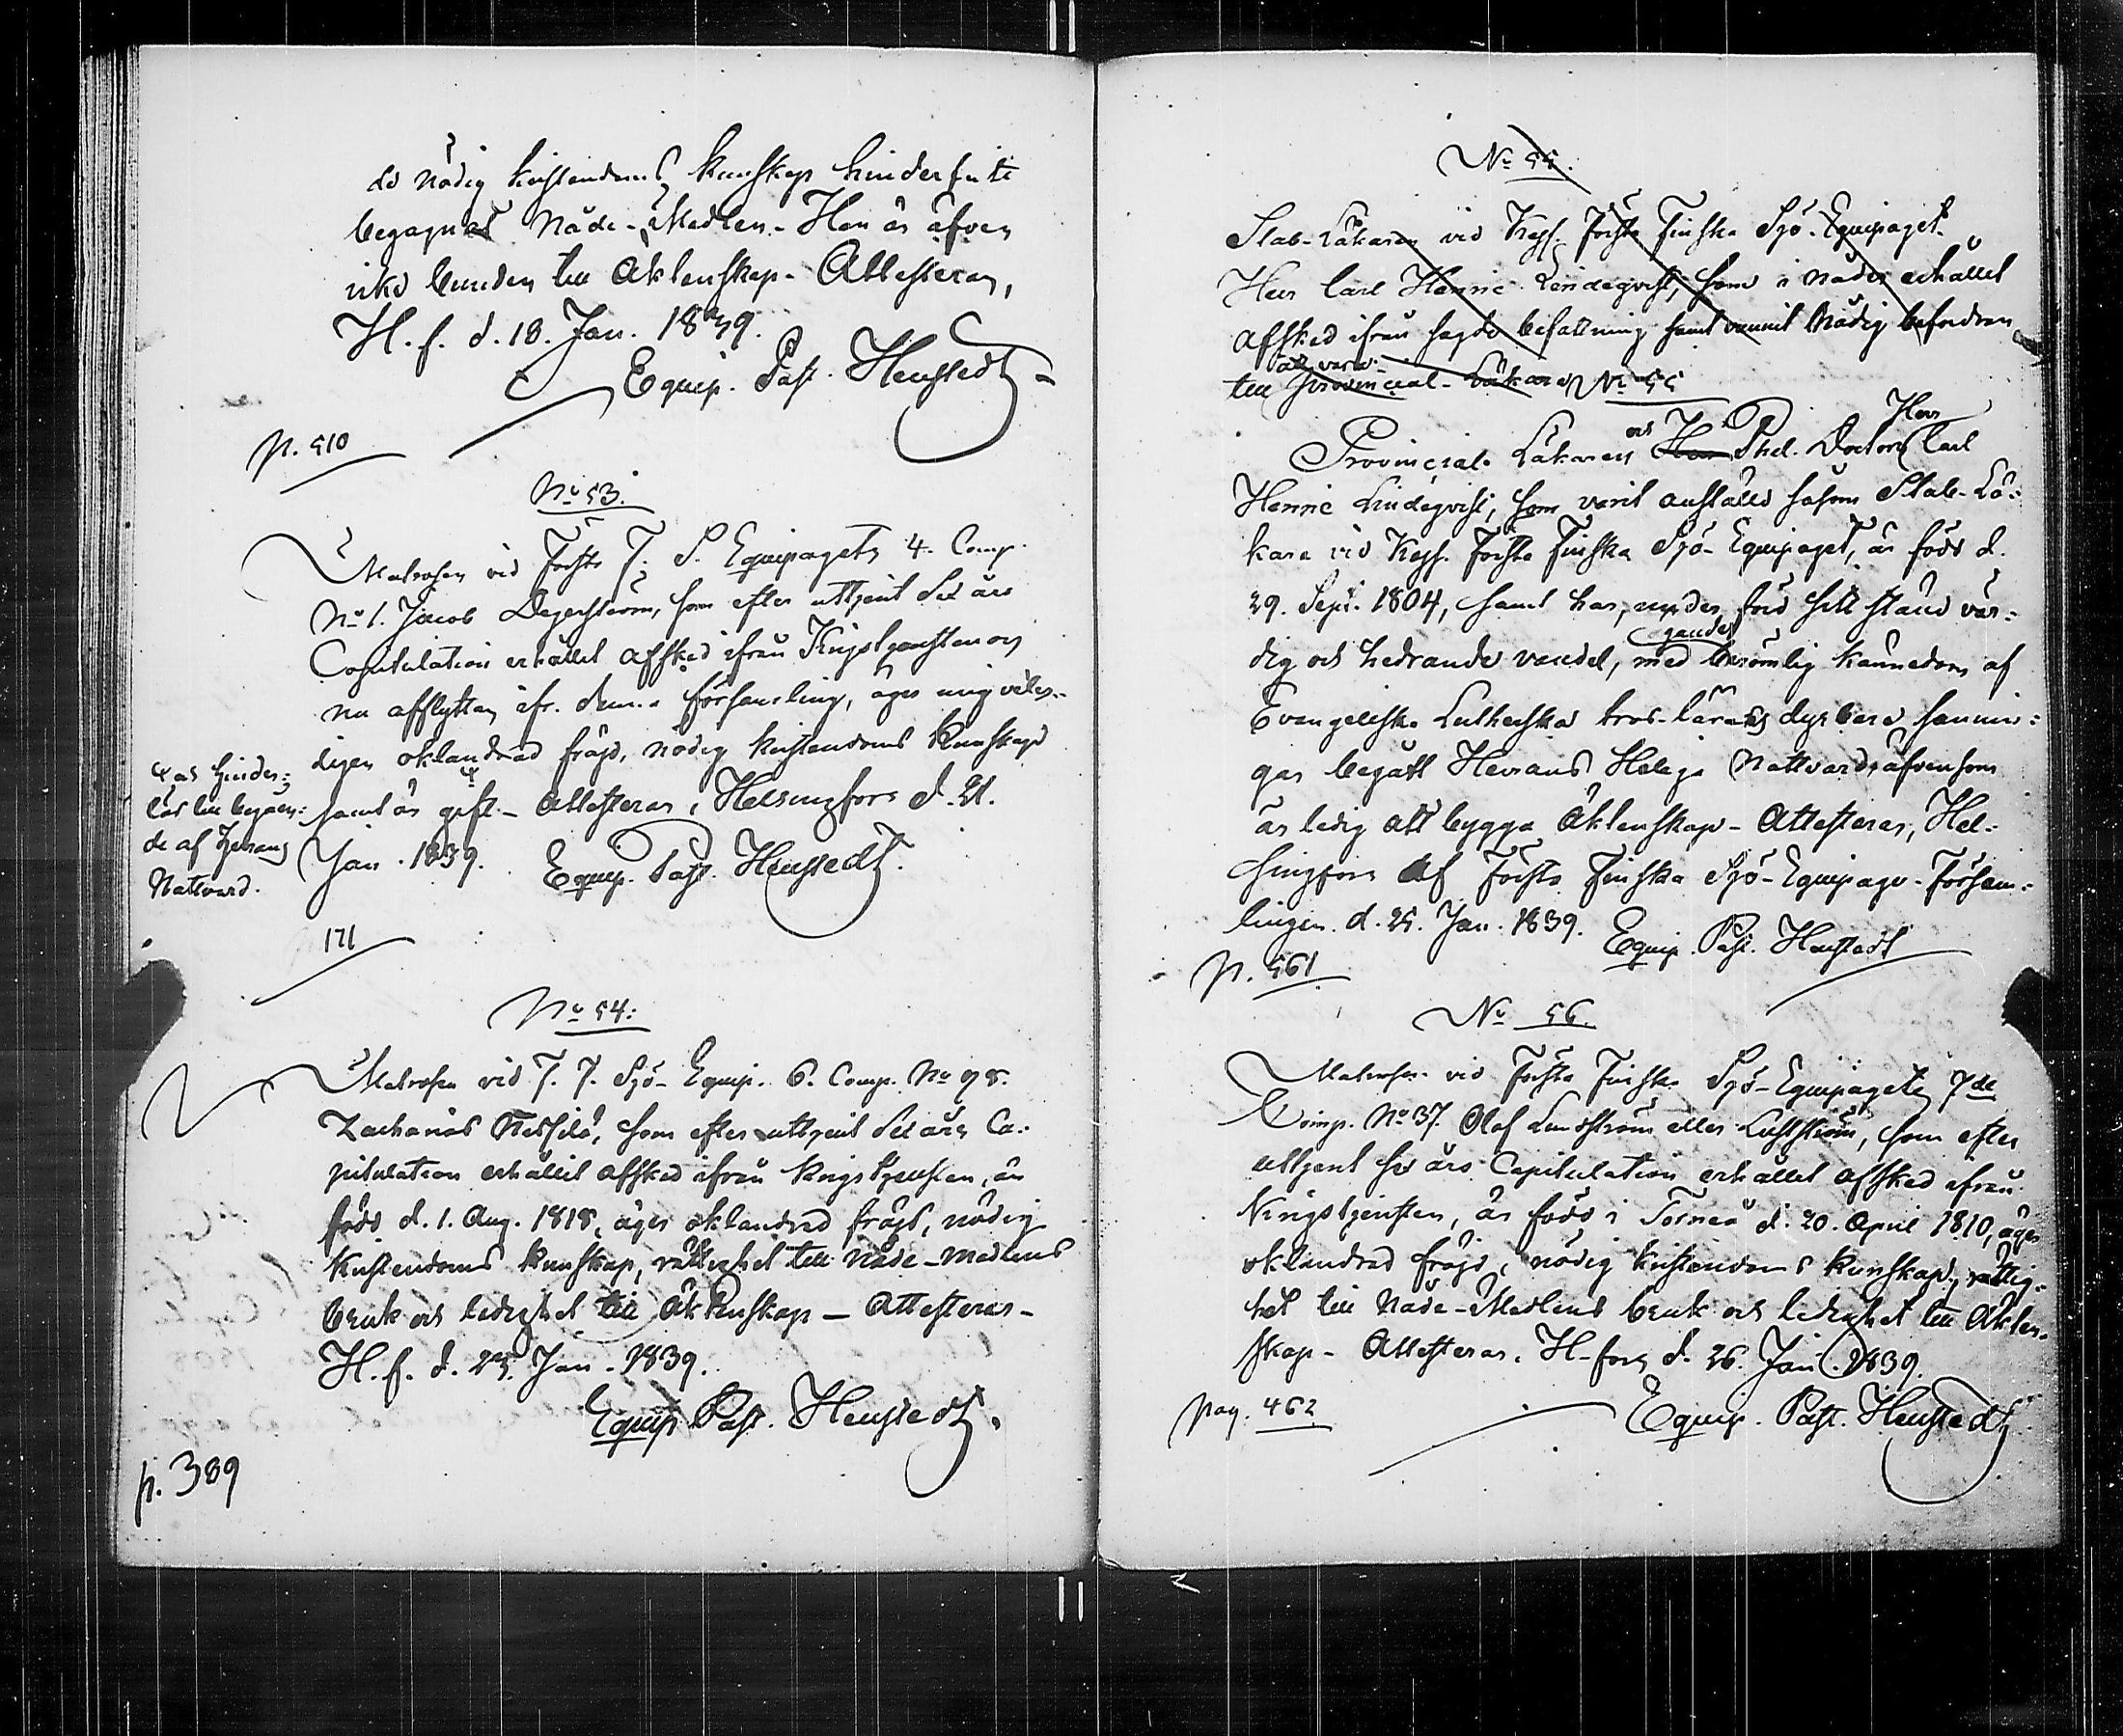 de nödig kristendoms kunskap hinderfritt
begagnat Nåde-Medlen. Han är äfven
icke bunden till Äktenskap. Attesteras,
H.f. d. 18. Jan. 1839.
Equip. Past. Henstedt
p. 510
No 53.
Matrosen vid Första F. S. Equipagets 4. Comp.
No 1. Jacob Degerström, som efter uttjent Sex års
Capitulation erhållet afsked ifrån Krigstjensten och
nu afflyttar ifr. denna församling, äger mig veter-
ligen oklandrad frägd, nödig kristendoms kunskap
samt är gift. Attesteras, Helsingfors d. 21.
Jan. 1839. Equip. Past. Henstedt.
är hinders-
lös till begåen-
de af Herrans
Nattvard.
171
No 54:
Matrosen vid F. F. Sjö-Equip. 6. Comp. No 98.
Zacharias, som efter uttjent Sex års Ca-
pitulation erhållit afsked ifrån krigstjensten, är
född d. 1. Aug. 1818, äger oklandrad frägd, nödig
kristendoms kunskap, rättighet till Nåde-medlens
bruk och ledighet till Äktenskap — Attesteras -
H.f. d. 25. Jan. 1839.
Equip. Past. Henstedt.
p. 389
No 55.
Stab-Läkaren vid Kejs. Första Finska Sjö-Equipaget
Herr Carl Henric Lindeqvist, som i nåder erhållet
afsked ifrån sagde befattning samt vunnit Nådig befordran
att vara
till Provincial-Läkare No 55
och Herr
Provincial-Läkaren Herr Phil. Doctoren Carl
Henric Lindeqvist, som varit anställd såsom Stab-Lä-
kare vid Kejs. Första Finska Sjö-Equipaget, är född d.
29. Sept. 1804, samt har, under fört sitt stånd vär-
dig och hedrande vandel, med berömlig kännedom af
Evangeliska Lutherska tros-lärans dyrbara sannin-
gar begått Herrans Helga Nattvard, äfvensom
är ledig att bygga Äktenskap - Attesteras, Hel-
singfors af Första Finska Sjö-Equipage-Försam-
lingen d. 25. Jan. 1839. Equip. Past. Henstedt
p. 561
No 56.
Matrosen vid Första Finska Sjö-Equipagets 7de
Comp. No 37. Olof Lundström eller Lustström, som efter
uttjent sex års Capitulation erhållet afsked ifrån
Krigstjensten, är född i Torneå d. 20. April 1810, äger
oklandrad frägd, nödig kristendoms kunskap, rättig-
het till Nåde-Medlens bruk och ledighet till Äkten-
skap - Attesteras. H-fors d. 26. Jan. 1839.
pag. 462
Equip. Past. Henstedt